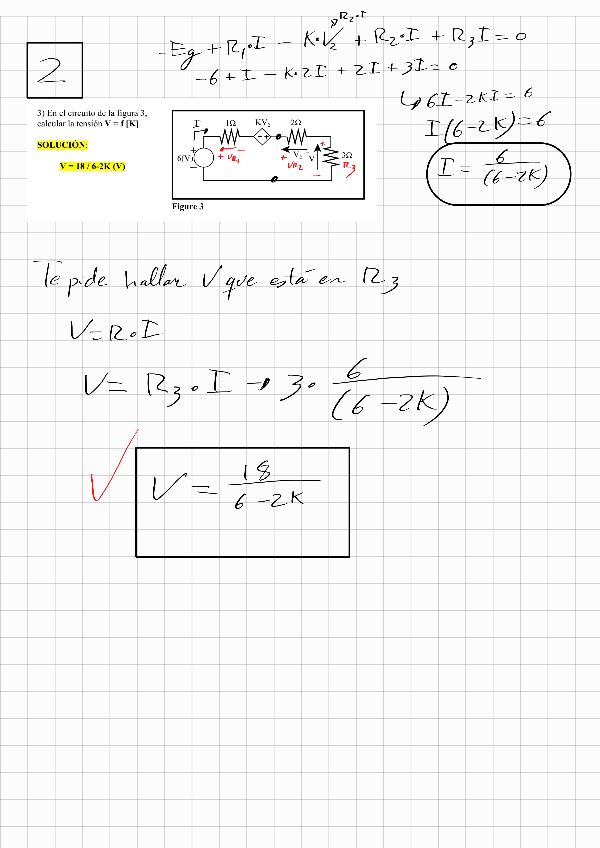 R₂·I
-Eg + R₁·I - K·V₂ + R₂·I + R₃I = 0
-6 + I - K·2I + 2I + 3I = 0
2
↳ 6I - 2KI = 6
I(6-2K) = 6
I = 6/(6-2K)
3) En el circuito de la figura 3,
calcular la tensión V = f [K]
SOLUCIÓN:
V = 18 / 6-2K (V)
I 1Ω KV₂ 2Ω
6(V) + - + VR₁ - - + + V₂ - VR₂ V + - 3Ω R₃
Figure 3
Te pide hallar V que está en R₃
V = R·I
V = R₃·I → 3· 6/(6-2K)
✓ V = 18/6-2K